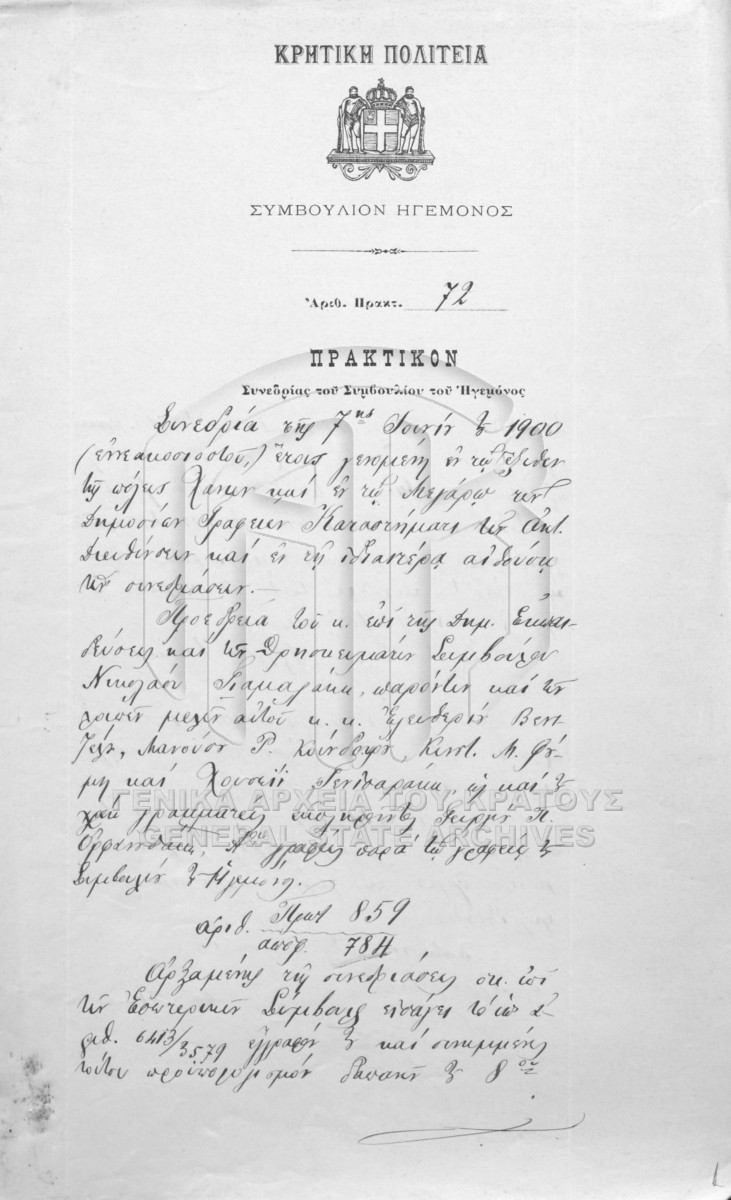 ΚΡΗΤΙΚΗ ΠΟΛΙΤΕΙΑ
ΣΥΜΒΟΥΛΙΟΝ ΗΓΕΜΟΝΟΣ
Ἀριθ. Πρακτ. 72
ΠΡΑΚΤΙΚΟΝ
Συνεδρίας τοῦ Συμβουλίου τοῦ Ἡγεμόνος
Συνεδρία τῆς 7ης Ἰουνίου 1900
(ἐννεακοσιοστοῦ,) ἔτους γενομένη ἐν τῷ ἔξωθεν
τῆς πόλεως Χανίων καὶ ἐν τῷ Μεγάρῳ τῶν
Δημοσίων Γραφείων Καταστήματι τῶν Ἀνωτ.
Διευθύνσεων καὶ ἐν τῇ ἰδιαιτέρᾳ αἰθούσῃ
τῶν συνεδριάσεων.—
Προεδρείᾳ τοῦ κ. ἐπὶ τῆς Δημ. Ἐκπαι-
δεύσεως καὶ τῶν Θρησκευμάτων Συμβούλου
Νικολάου Γιαμαλάκη, παρόντων καὶ τῶν
λοιπῶν μελῶν αὐτοῦ κ. κ. Ἐλευθερίου Βενι-
ζέλου, Μανούσου Ρ. Κούνδουρου, Κωνστ. Μ. Φού-
μη καὶ Χουσεΐν Γενιτσαράκη, ὡς καὶ
γραμματέως Γεωργίου Π.
γραφέως παρὰ τῷ γραφείῳ
Συμβουλίου Ἡγεμόνος.
ἀριθ. Πρωτ 859
784
Ἀρξαμένης τῆς συνεδριάσεως ὁ κ. ἐπὶ
τῶν Ἐσωτερικῶν Σύμβουλος εἰσάγει τὸ ὑπ' ἀ-
ριθ. 6413/3579 ἔγγραφόν καὶ συνημμένως
τούτῳ προϋπολογισμὸν δαπανῶν 8ου
ΓΕΝΙΚΑ ΑΡΧΕΙΑ ΤΟΥ ΚΡΑΤΟΥΣ
GENERAL STATE ARCHIVES